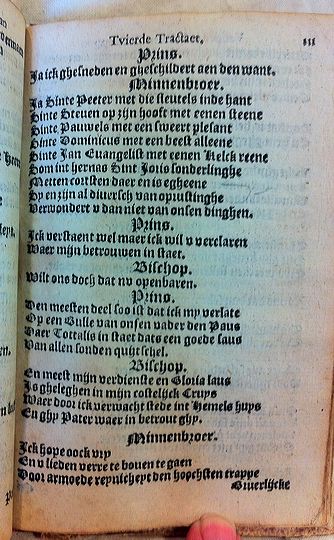 Tvierde Tractaet. 111
Prins.
Ja ick ghesneden en gheschildert aen den want.
Minnenbroer.
Ja Sinte Peeter met die sleutels inde hant
Sinte Steuen op zijn hooft met eenen steene
Sinte Pauwels met een sweert plesant
Sinte Dominicus met een beest alleene
Sint Jan Euangelist met eenen Kelck reene
Som int hernas Sint Joris sonderlinghe
Metten cortsten daer en is egheene
Sy en zijn al diuersch van opiustinghe
Verwondert v dan niet van onsen dinghen.
Prins.
Ick verstaent wel maer ick wil v verclaren
Waer mijn betrouwen in staet.
Bisschop.
Wilt ons doch dat nv openbaren.
Prins.
Den meesten deel soo ist dat ick my verlate
Op een Bulle van onsen vader den Paus
Daer Tottalis in staet dats een goede saus
Van allen sonden quijtschel.
Bisschop.
En meest mijn verdienste en Gloria laus
Is gheleghen in mijn costelijck Cruys
Waer door ick verwacht stede int Hemels huys
En ghy Pater waer in betrout ghy.
Minnenbroer.
Ick hope oock vry
En v lieden verre te bouen te gaen
Door armoede reynicheyt den hoochsten trappe
Siuerlijcke